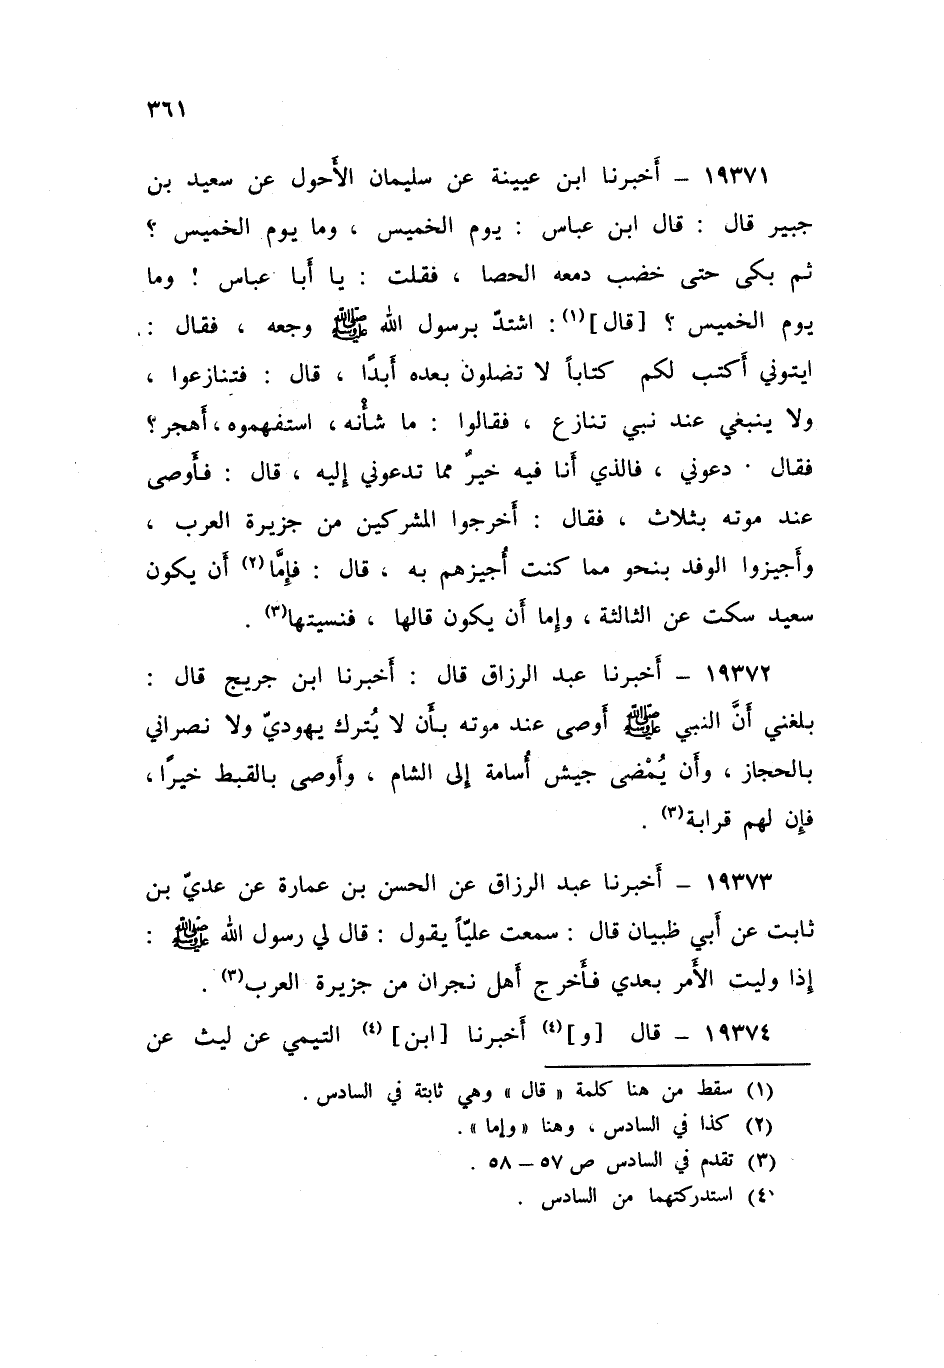 ٣٦١
١٩٣٧١ – أَخبرنا ابن عيينة عن سليمان الأَحول عن سعيد بن
جبير قال : قال ابن عباس : يوم الخميس ، وما يوم الخميس ؟
ثم بكى حتى خضب دمعه الحصا ، فقلت : يا أَبا عباس ! وما
يوم الخميس ؟ [قال](١) : اشتدّ برسول الله ﷺ وجعه ، فقال :
ايتوني أَكتب لكم كتاباً لا تضلون بعده أَبدًا ، قال : فتنازعوا ،
ولا ينبغي عند نبي تنازع ، فقالوا : ما شأْنه ، استفهموه ، أَهجر ؟
فقال · دعوني ، فالذي أَنا فيه خيرٌ مما تدعوني إليه ، قال : فأَوصى
عند موته بثلاث ، فقال : أَخرجوا المشركين من جزيرة العرب ،
وأَجيزوا الوفد بنحو مما كنت أُجيزهم به ، قال : فإِمَّا(٢) أَن يكون
سعيد سكت عن الثالثة ، وإما أَن يكون قالها ، فنسيتها(٣) .
١٩٣٧٢ – أَخبرنا عبد الرزاق قال : أَخبرنا ابن جريج قال :
بلغني أَنَّ النبي ﷺ أَوصى عند موته بأَن لا يُترك يهوديّ ولا نصراني
بالحجاز ، وأَن يُمْضى جيش أُسامة إلى الشام ، وأَوصى بالقبط خيرًا ،
فإن لهم قرابة(٣) .
١٩٣٧٣ – أَخبرنا عبد الرزاق عن الحسن بن عمارة عن عديّ بن
ثابت عن أَبي ظبيان قال : سمعت عليّاً يقول : قال لي رسول الله ﷺ :
إذا وليت الأَمر بعدي فأَخرج أَهل نجران من جزيرة العرب(٣) .
١٩٣٧٤ – قال [و](٤) أَخبرنا [ابن](٤) التيمي عن ليث عن
(١) سقط من هنا كلمة « قال » وهي ثابتة في السادس .
(٢) كذا في السادس ، وهنا « وإما » .
(٣) تقدم في السادس ص ٥٧ – ٥٨ .
(٤) استدركتهما من السادس .